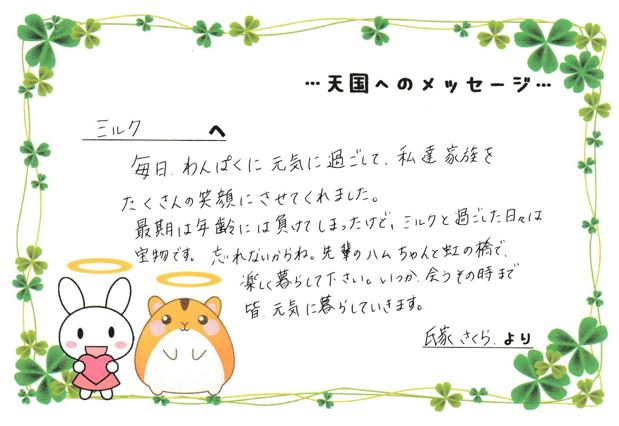 …天国へのメッセージ…
ミルク へ
毎日、わんぱくに元気に過ごして、私達家族を
たくさんの笑顔にさせてくれました。
最期は年齢には負けてしまったけど、ミルクと過ごした日々は
宝物です。忘れないからね。先輩のハムちゃんと虹の橋で、
楽しく暮らして下さい。いつか、会うその時まで
皆、元気に暮らしていきます。
氏家 さくら、より